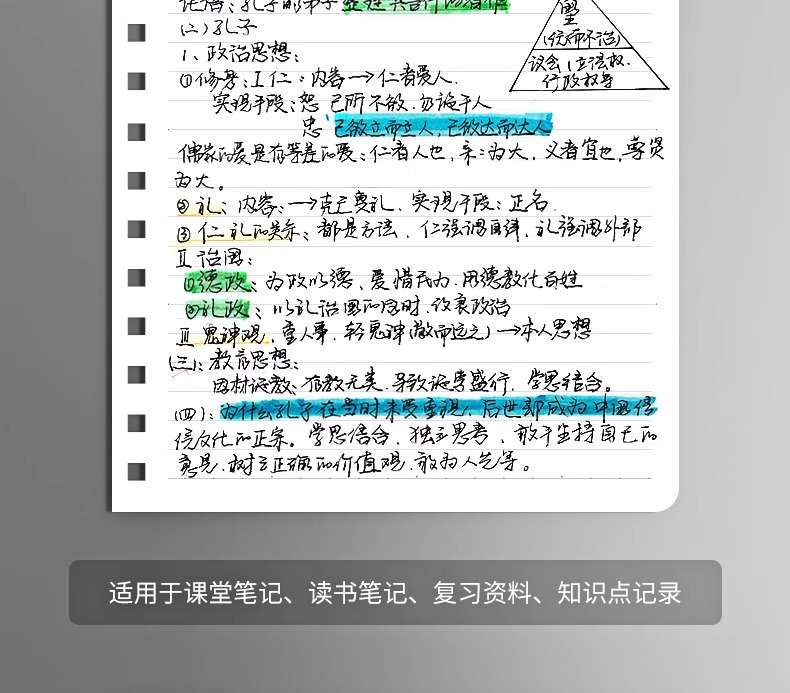 (二)孔子
1、政治思想：
①修身：Ⅰ仁：内容→仁者爱人.
实现手段：恕 己所不欲.勿施于人
忠 己欲立而立人，己欲达而达人
儒家的爱是有等差的爱：仁者人也，亲亲为大，义者宜也，尊贤
为大。
②礼：内容：→克己复礼.实现手段：正名.
③仁礼的关系：都是方法、仁强调自律，礼强调外部
Ⅱ治国：
①德政：为政以德、爱惜民力.用德教化百姓
②礼政：以礼治国的思时，
政治
Ⅲ鬼神观.重人事、轻鬼神(敬而远之)→本人思想
(三)：教育思想：
因材施教、有教无类、
学盛行、学思结合。
(四)：为什么孔子在当时未受重视，后世却成为中国传
统文化的正宗。学思结合、独立思考、敢于坚持自己的
意见.树立正确的价值观.敢为人先等。
(统而不治)
议会(立法权.
行政权等
适用于课堂笔记、读书笔记、复习资料、知识点记录